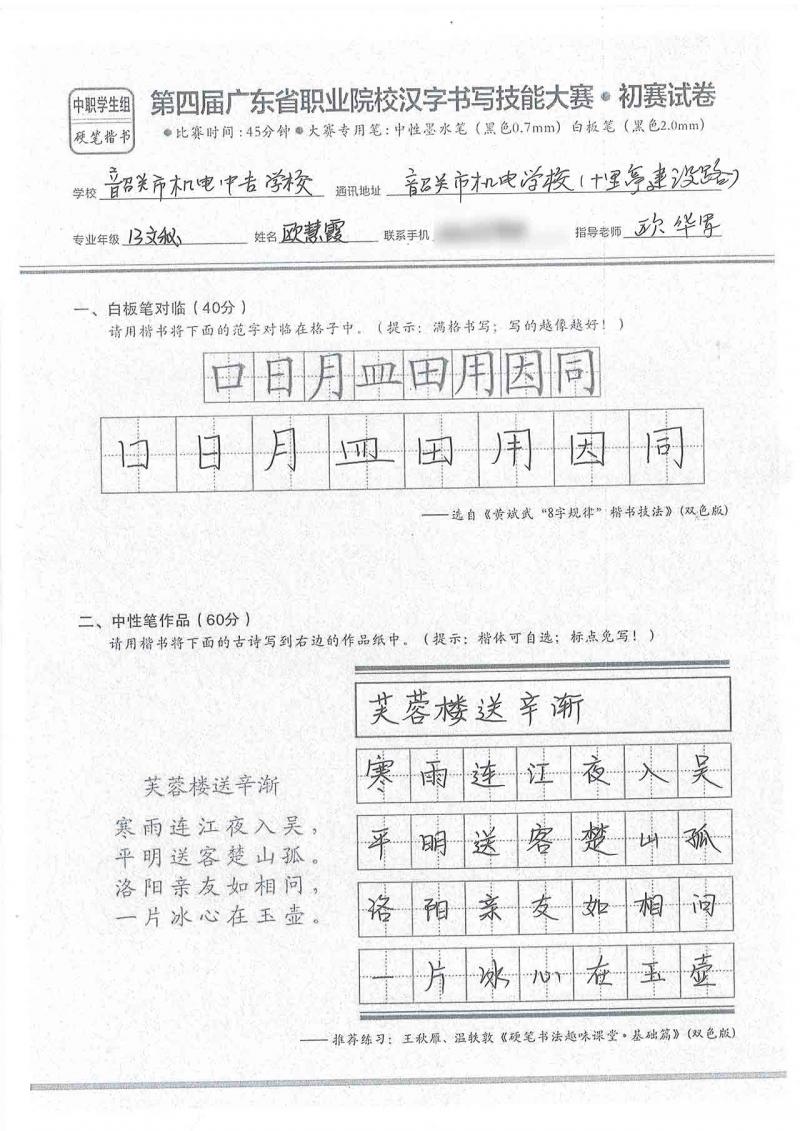 中职学生组
硬笔楷书
第四届广东省职业院校汉字书写技能大赛·初赛试卷
●比赛时间:45分钟●大赛专用笔:中性墨水笔(黑色0.7mm)白板笔(黑色2.0mm)
学校 韶关市机电中专学校 通讯地址 韶关市机电学校(十里亭建设路)
专业年级 13文秘 姓名 欧慧霞 联系手机 指导老师 欧华军
一、白板笔对临(40分)
请用楷书将下面的范字对临在格子中。(提示:满格书写;写的越像越好!)
口日月皿田用因同
口日月皿田用因同
——选自《黄斌武“8字规律”楷书技法》(双色版)
二、中性笔作品(60分)
请用楷书将下面的古诗写到右边的作品纸中。(提示:楷体可自选;标点免写!)
芙蓉楼送辛渐
寒雨连江夜入吴,
平明送客楚山孤。
洛阳亲友如相问,
一片冰心在玉壶。
芙蓉楼送辛渐
寒雨连江夜入吴
平明送客楚山孤
洛阳亲友如相问
一片冰心在玉壶
——推荐练习:王秋雁、温轶敦《硬笔书法趣味课堂·基础篇》(双色版)